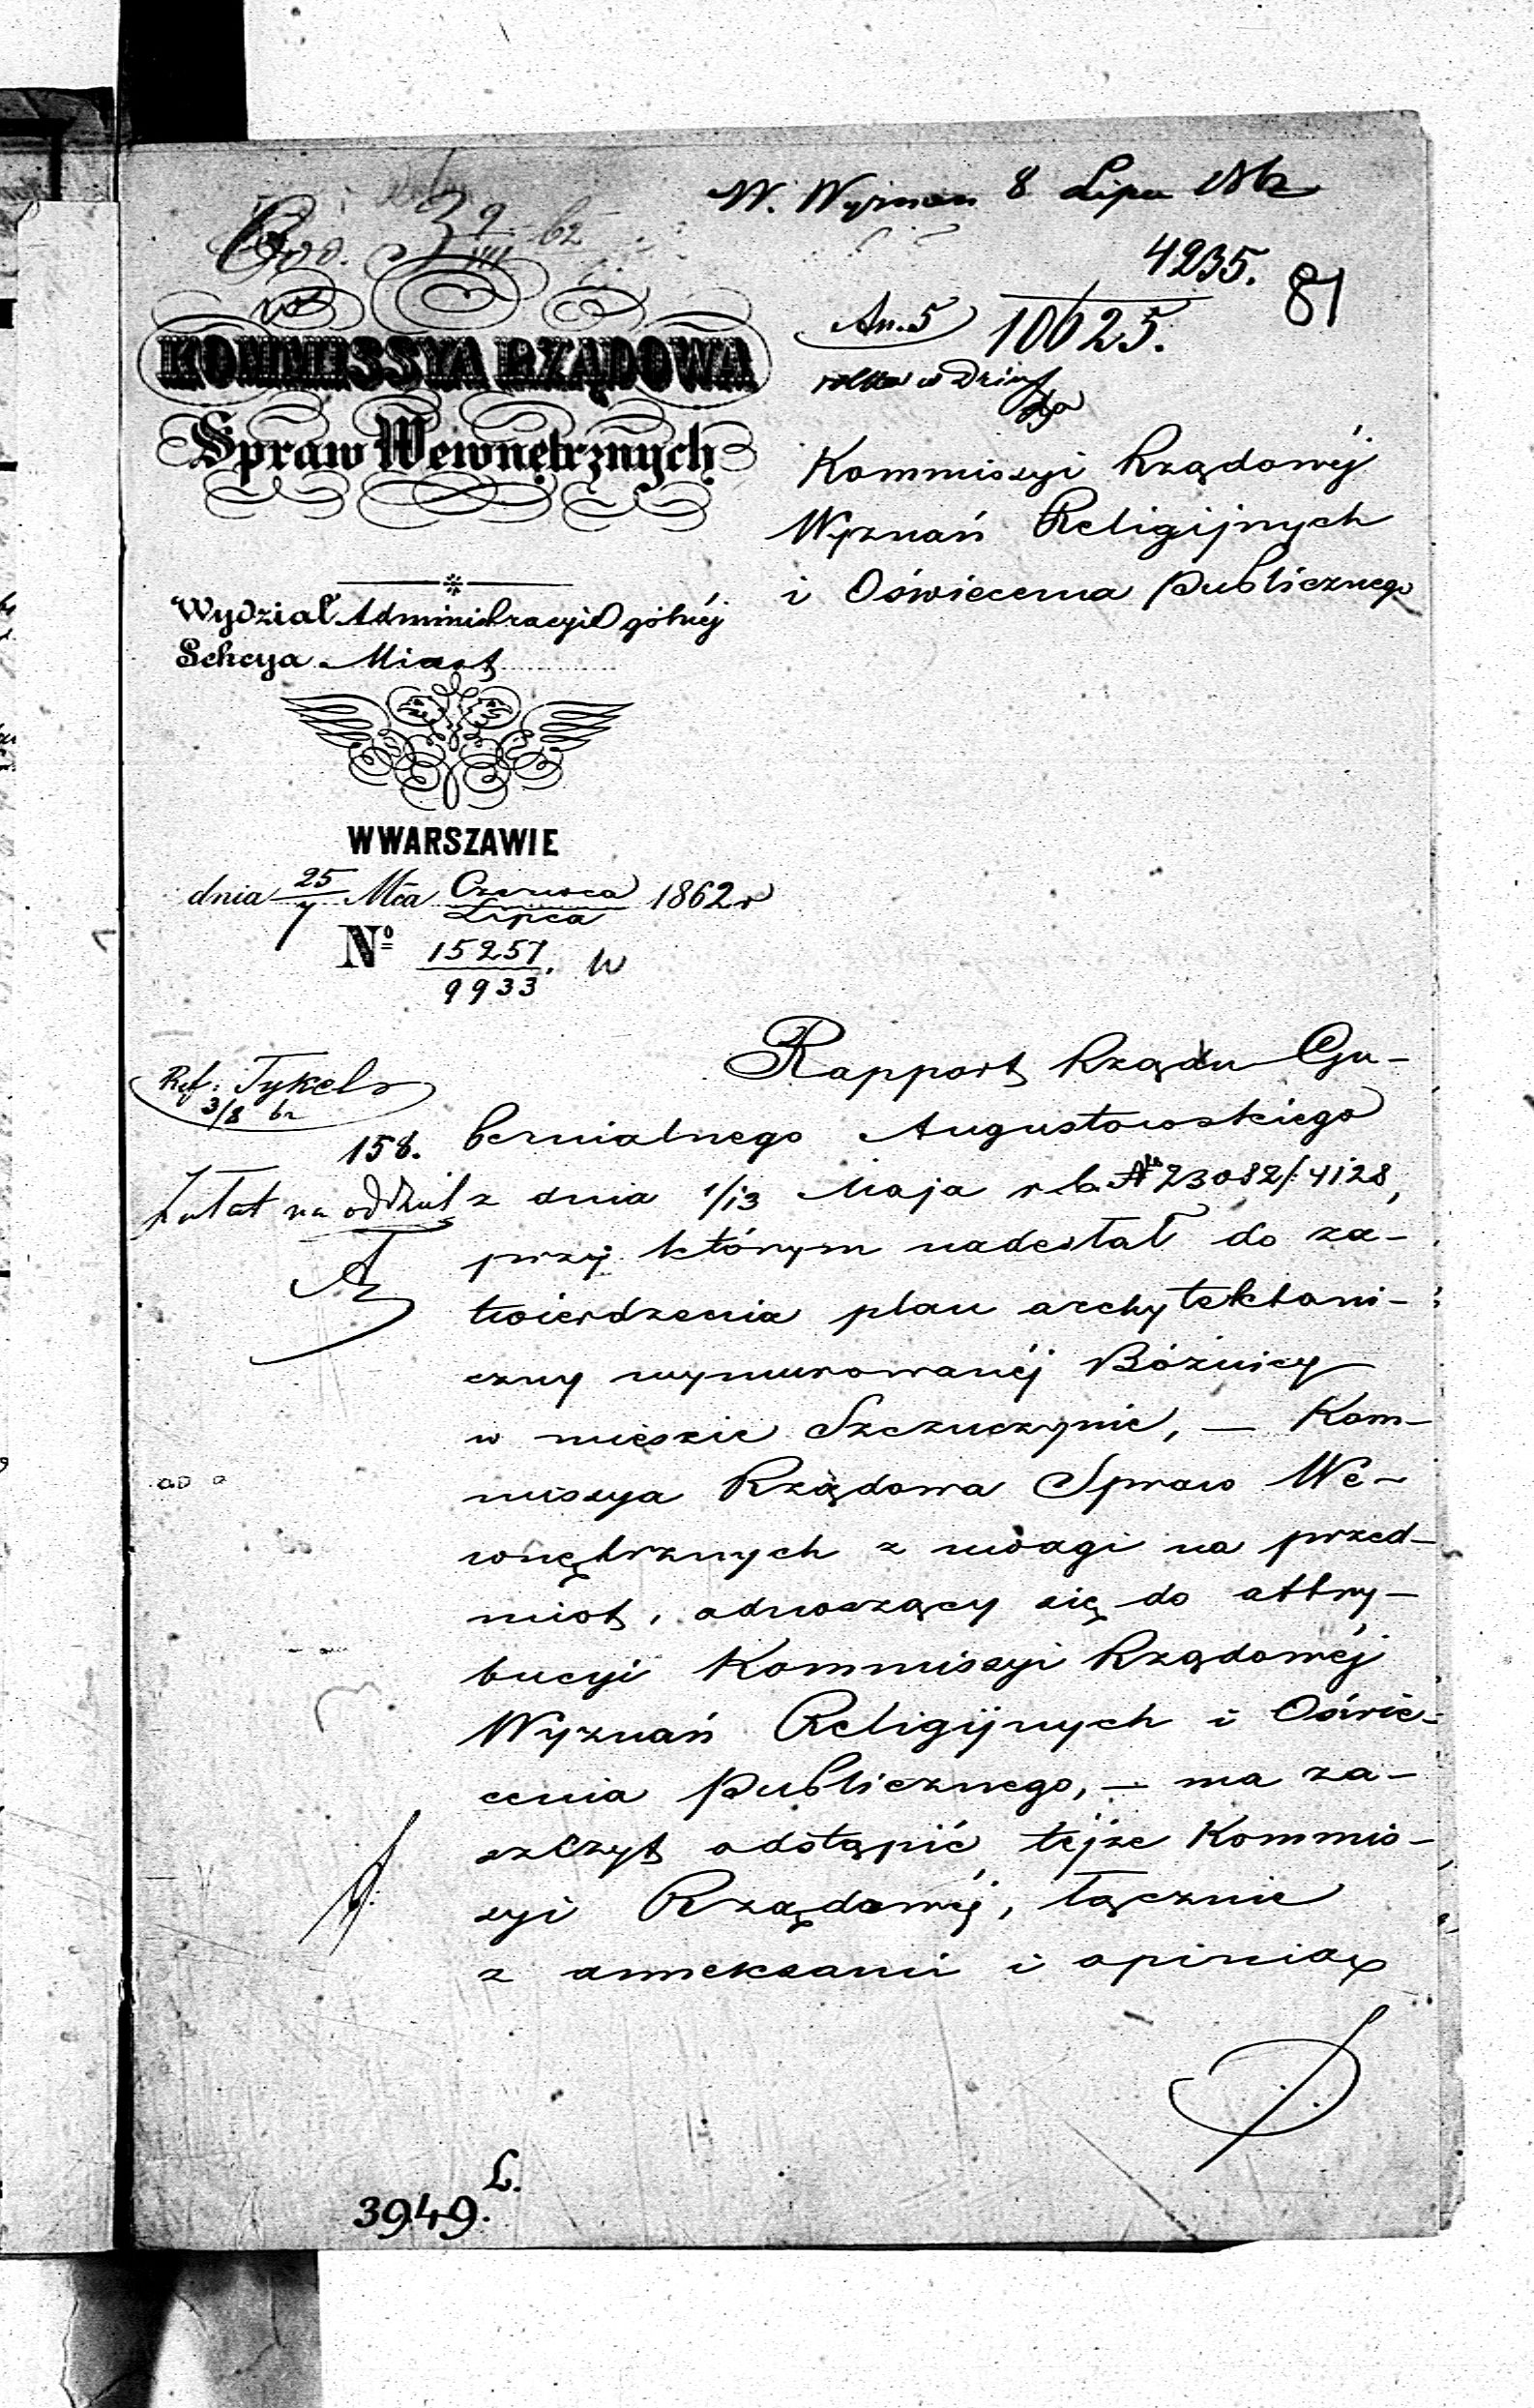 W. Wyznań 8 Lipca 1862
4235.
81
An. 5
10625.
KOMMISSYA RZĄDOWA
Spraw Wewnętrznych
Kommissyi Rządowéj
Wyznań Religijnych
i Oświecenia Publicznego
Wydział Administracyi Ogólnéj
Sekcya Miast
W WARSZAWIE
dnia 25/7 Mca Czerwca/Lipca 1862 r
No 15257/9933. W
Rapport Rządu Gu-
Ref: Tykel
3/8 62
158.
bernialnego Augustowskiego
z dnia 1/13 Maja r b. No 23082/4128,
przy którym nadesłał do za-
twierdzenia plan architektoni-
czny wymurowanéj Bóżnicy
w mieście Szczuczynie, — Kom-
missya Rządowa Spraw We-
wnętrznych z uwagi na przed-
miot, odnoszący się do attry-
bucyi Kommissyi Rządowéj
Wyznań Religijnych i Oświe-
cenia Publicznego, — ma za-
szczyt odstąpić téjże Kommis-
syi Rządowéj, łącznie
z anneksami i opinią
L.
3949.